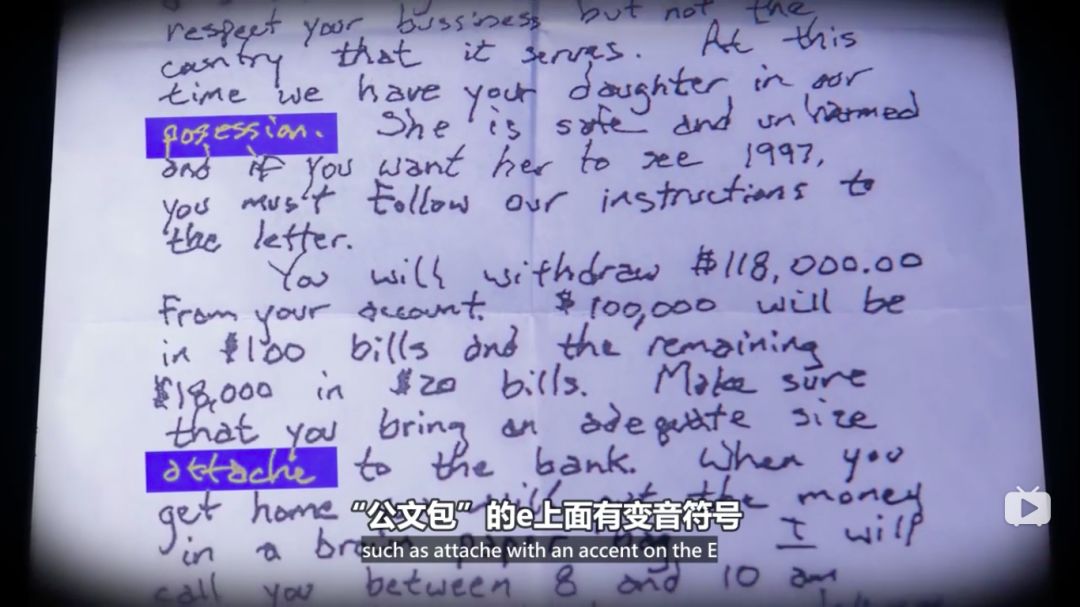 respect your bussiness but not the
country that it serves. At this
time we have your daughter in our
posession. She is safe and unharmed
and if you want her to see 1997,
you must follow our instructions to
the letter.
You will withdraw $118,000.00
from your account. $100,000 will be
in $100 bills and the remaining
$18,000 in $20 bills. Make sure
that you bring an adequate size
attache to the bank. When you
get home you will put the money
“公文包”的e上面有变音符号
in a brown paper bag. I will
such as attache with an accent on the E
call you between 8 and 10 am